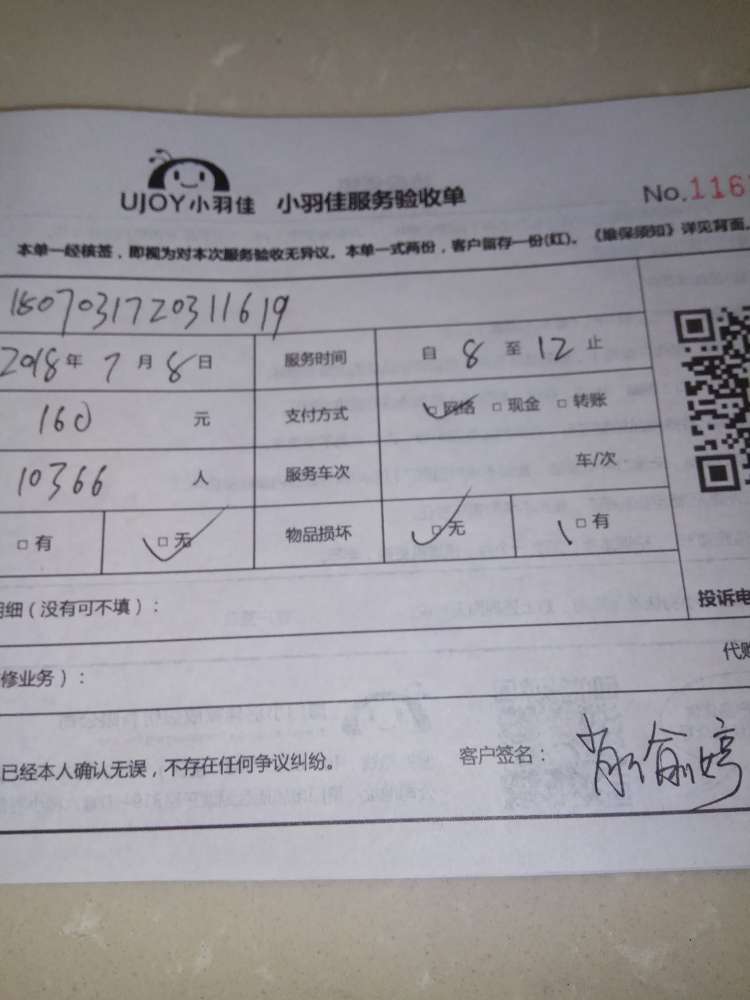 UJOY小羽佳 小羽佳服务验收单 No.116
本单一经核签，即视为对本次服务验收无异议。本单一式两份，客户留存一份(红)。《维保须知》详见背面。
1807031720311619
2018年 7月 8日 服务时间 自 8 至 12 止
160 元 支付方式 □网络 □现金 □转账
10366 人 服务车次 车/次
□有 □无 物品损坏 □无 □有
明细（没有可不填）： 投诉电
修业务）： 代购
已经本人确认无误，不存在任何争议纠纷。 客户签名：